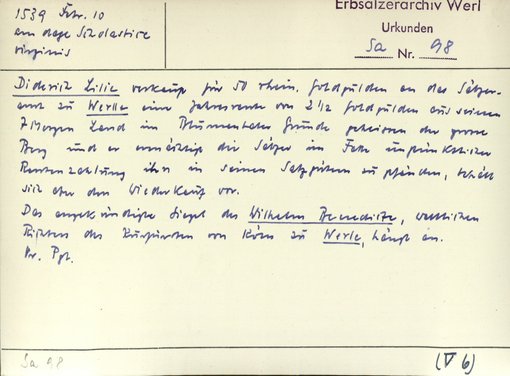 Erbsälzerarchiv Werl
Urkunden
Sa Nr. 98
1539 Febr. 10
am dage Scholastice
virginis
Diderich Lilie verkauft für 50 rhein. Goldgulden an das Sälzer-
amt zu Werlle eine Jahresrente von 2 1/2 Goldgulden aus seinen
7 Morgen Land im Blumentaler Grunde geheissen der grosse
Berg und er ermächtigt die Sälzer im Falle unpünktlicher
Rentenzahlung ihn in seinen Salzgütern zu pfänden, behält
sich aber den Wiederkauf vor.
Das angekündigte Siegel des Wilhelm Benedicte, weltlichen
Richters des Kurfürsten von Köln zu Werle, hängt an.
Or. Pgt.
Sa 98
(V 6)